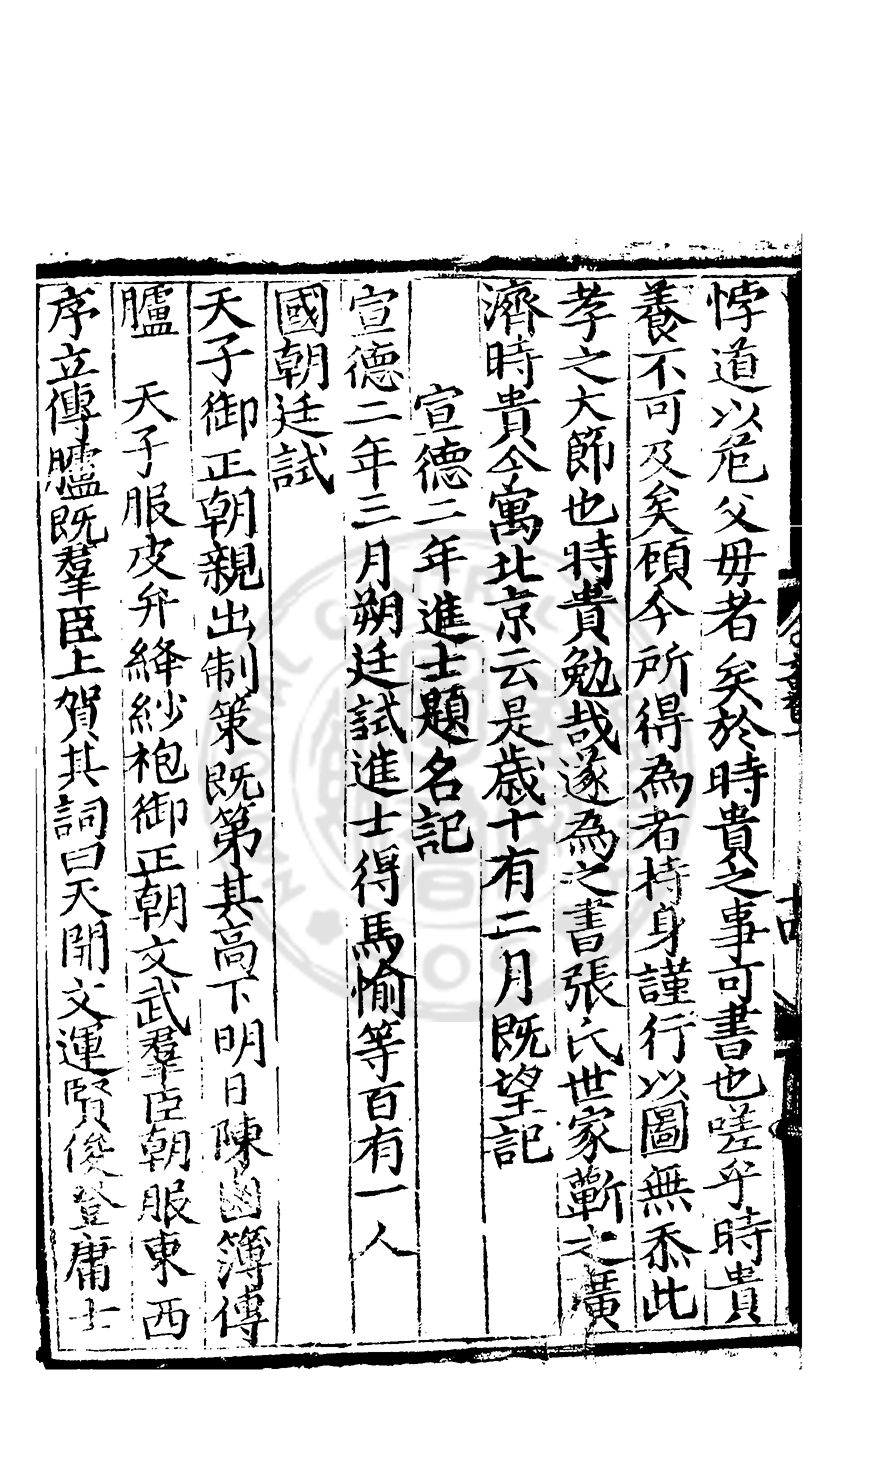 悖道以危父母者矣於時貴之事可書也嗟乎時貴
養不可及矣顧今所得為者持身謹行以圖無忝此
孝之大節也時貴勉哉遂為之書張氏世家蘄之廣
濟時貴今寓北京云是歲十有二月既望記
宣德二年進士題名記
宣德二年三月朔廷試進士得馬愉等百有一人
國朝廷試
天子御正朝親出制策既第其高下明日陳鹵簿傳
臚 天子服皮弁絳紗袍御正朝文武羣臣朝服東西
序立傳臚既羣臣上賀其詞曰天開文運賢俊登庸士